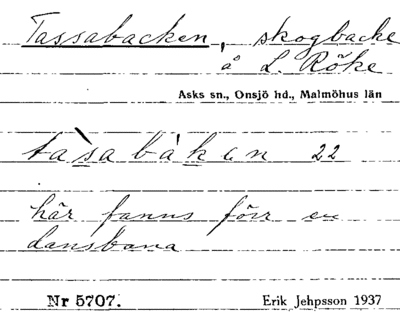 Tassabacken, skogbacke
å L. Röke
Asks sn., Onsjö hd., Malmöhus län
tàsabàken 22
här fanns förr en
dansbana
Nr 5707. Erik Jehpsson 1937